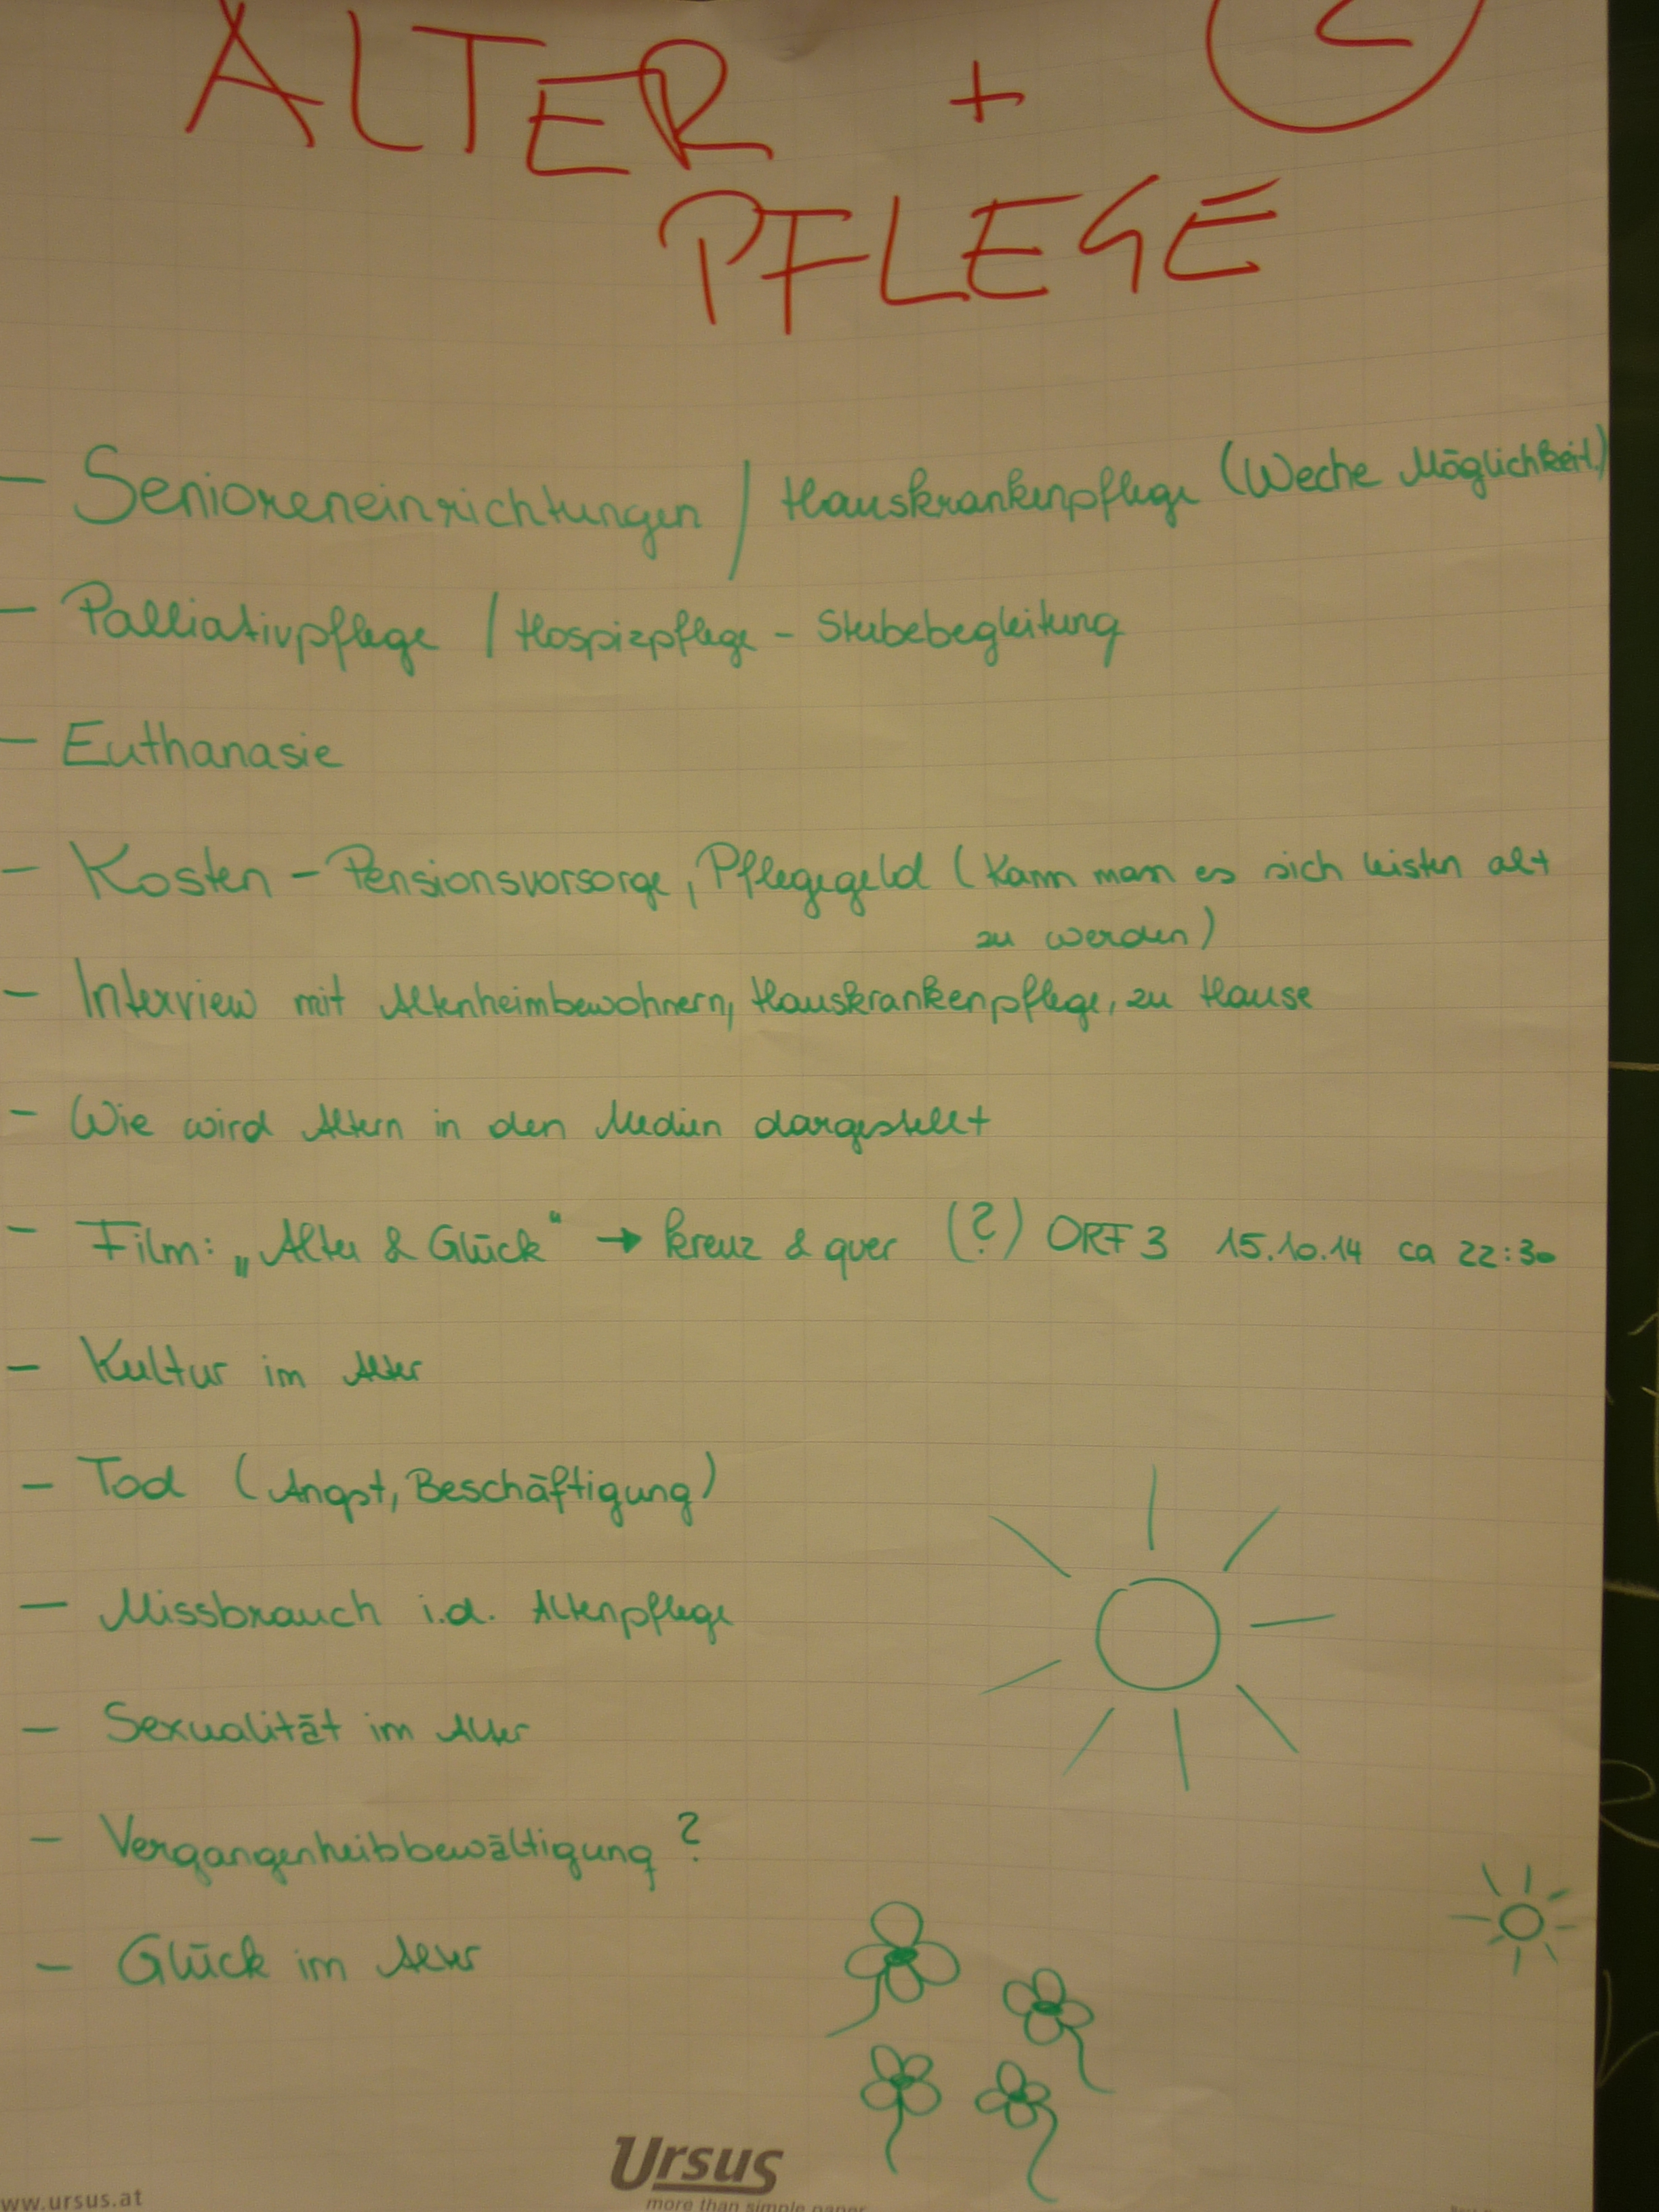 ALTER +
PFLEGE
- Senioreneinrichtungen / Hauskrankenpflege (Weche Möglichkeit.)
- Palliativpflege / Hospizpflege - Stebebegleitung
- Euthanasie
- Kosten - Pensionsvorsorge, Pflegegeld (Kann man es sich leisten alt
zu werden)
- Interview mit Altenheimbewohnern, Hauskrankenpflege, zu Hause
- Wie wird Altern in den Medien dargestellt
- Film: „Alter & Glück“ → kreuz & quer (?) ORF 3 15.10.14 ca 22:30
- Kultur im Alter
- Tod (Angst, Beschäftigung)
- Missbrauch i.d. Altenpflege
- Sexualität im Alter
- Vergangenheitsbewältigung?
- Glück im Alter
Ursus
ww.ursus.at
more than simple paper